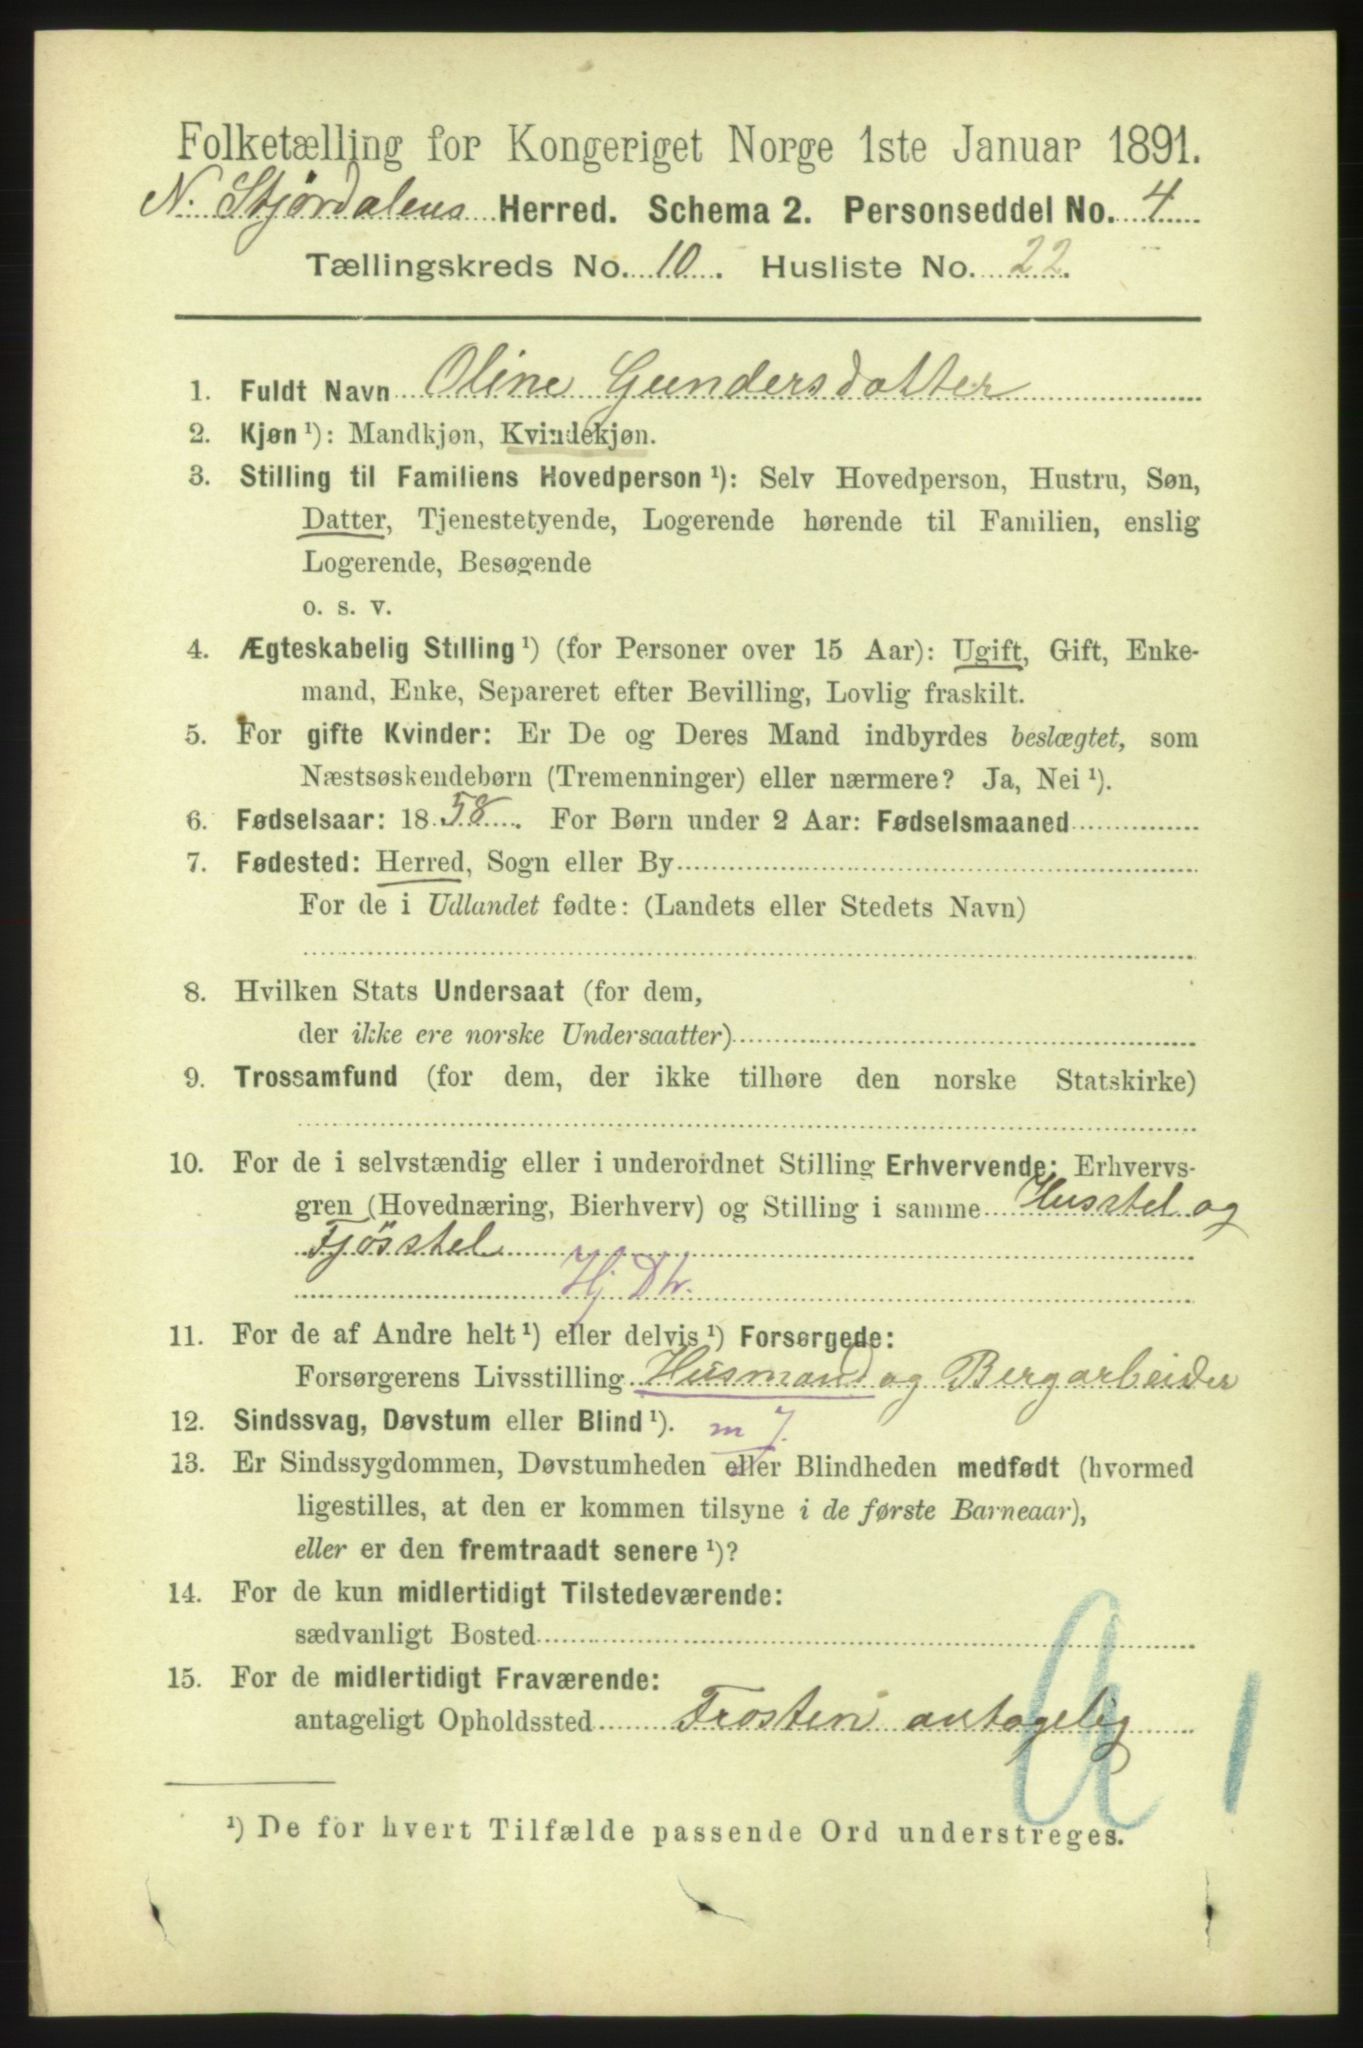 Folketælling for Kongeriget Norge 1ste Januar 1891.
N. Stjørdalens Herred. Schema 2. Personseddel No. 4
Tællingskreds No. 10. Husliste No. 22.
1. Fuldt Navn Oline Gundersdatter
2. Kjøn ¹): Mandkjøn, Kvindekjøn.
3. Stilling til Familiens Hovedperson ¹): Selv Hovedperson, Hustru, Søn,
Datter, Tjenestetyende, Logerende hørende til Familien, enslig
Logerende, Besøgende
o. s. v.
4. Ægteskabelig Stilling ¹) (for Personer over 15 Aar): Ugift, Gift, Enke-
mand, Enke, Separeret efter Bevilling, Lovlig fraskilt.
5. For gifte Kvinder: Er De og Deres Mand indbyrdes beslægtet, som
Næstsøskendebørn (Tremenninger) eller nærmere? Ja, Nei ¹).
6. Fødselsaar: 1858. For Børn under 2 Aar: Fødselsmaaned
7. Fødested: Herred, Sogn eller By
For de i Udlandet fødte: (Landets eller Stedets Navn)
8. Hvilken Stats Undersaat (for dem,
der ikke ere norske Undersaatter)
9. Trossamfund (for dem, der ikke tilhøre den norske Statskirke)
10. For de i selvstændig eller i underordnet Stilling Erhvervende: Erhvervs-
gren (Hovednæring, Bierhverv) og Stilling i samme Husstel og
Fjösstel
Hj Dtr.
11. For de af Andre helt ¹) eller delvis ¹) Forsørgede:
Forsørgerens Livsstilling Husmand og Bergarbeider
12. Sindssvag, Døvstum eller Blind ¹). m J.
13. Er Sindssygdommen, Døvstumheden eller Blindheden medfødt (hvormed
ligestilles, at den er kommen tilsyne i de første Barneaar),
eller er den fremtraadt senere ¹)?
14. For de kun midlertidigt Tilstedeværende:
sædvanligt Bosted
15. For de midlertidigt Fraværende:
antageligt Opholdssted Frosten antagelig
¹) De for hvert Tilfælde passende Ord understreges.